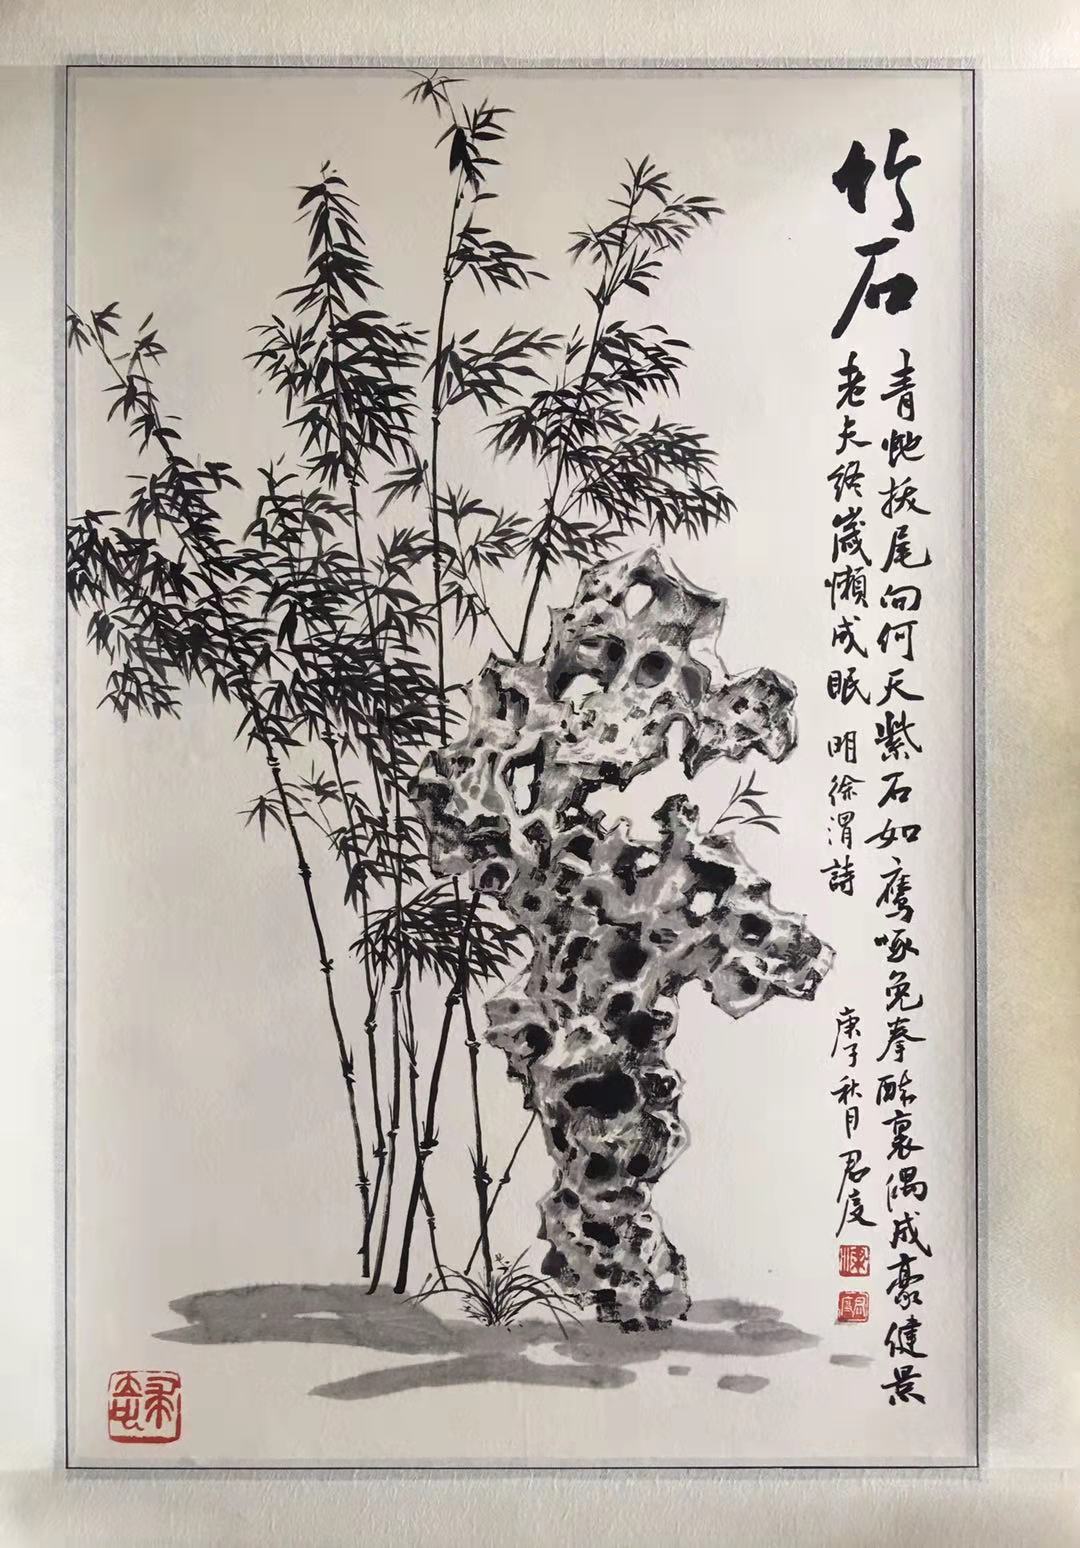 竹石
青虵拔尾向何天紫石如鷹啄兔拳酔裏偶成豪健景
老夫終歲懶成眠 明徐渭詩
庚子秋月君度